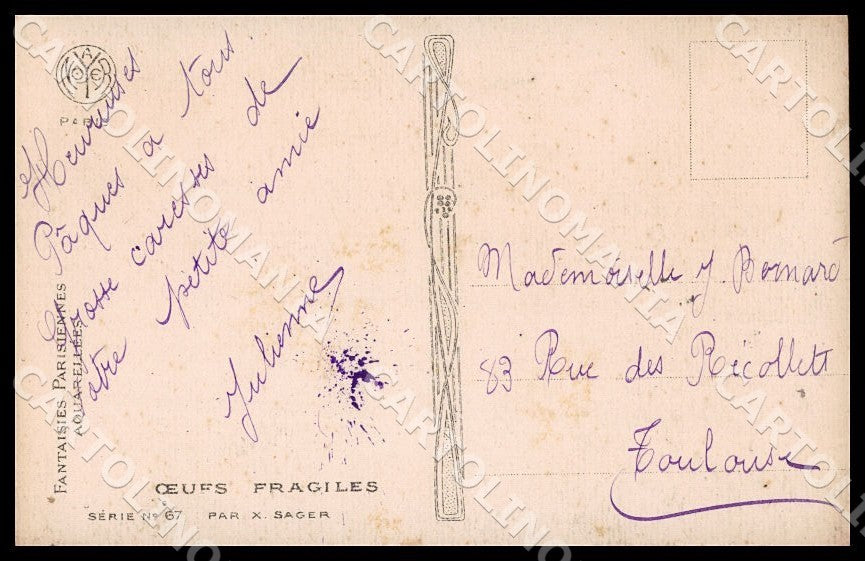 PARIS
Heureuses
Pâques a tous
Grosse caresses de
votre petite amie
Julienne
FANTAISIES PARISIENNES
AQUARELLÉES
ŒUFS FRAGILES
SÉRIE No 67 PAR X. SAGER
Mademoiselle J Bernard
83 Rue des Récollets
Toulouse
CARTOLINOMANIA